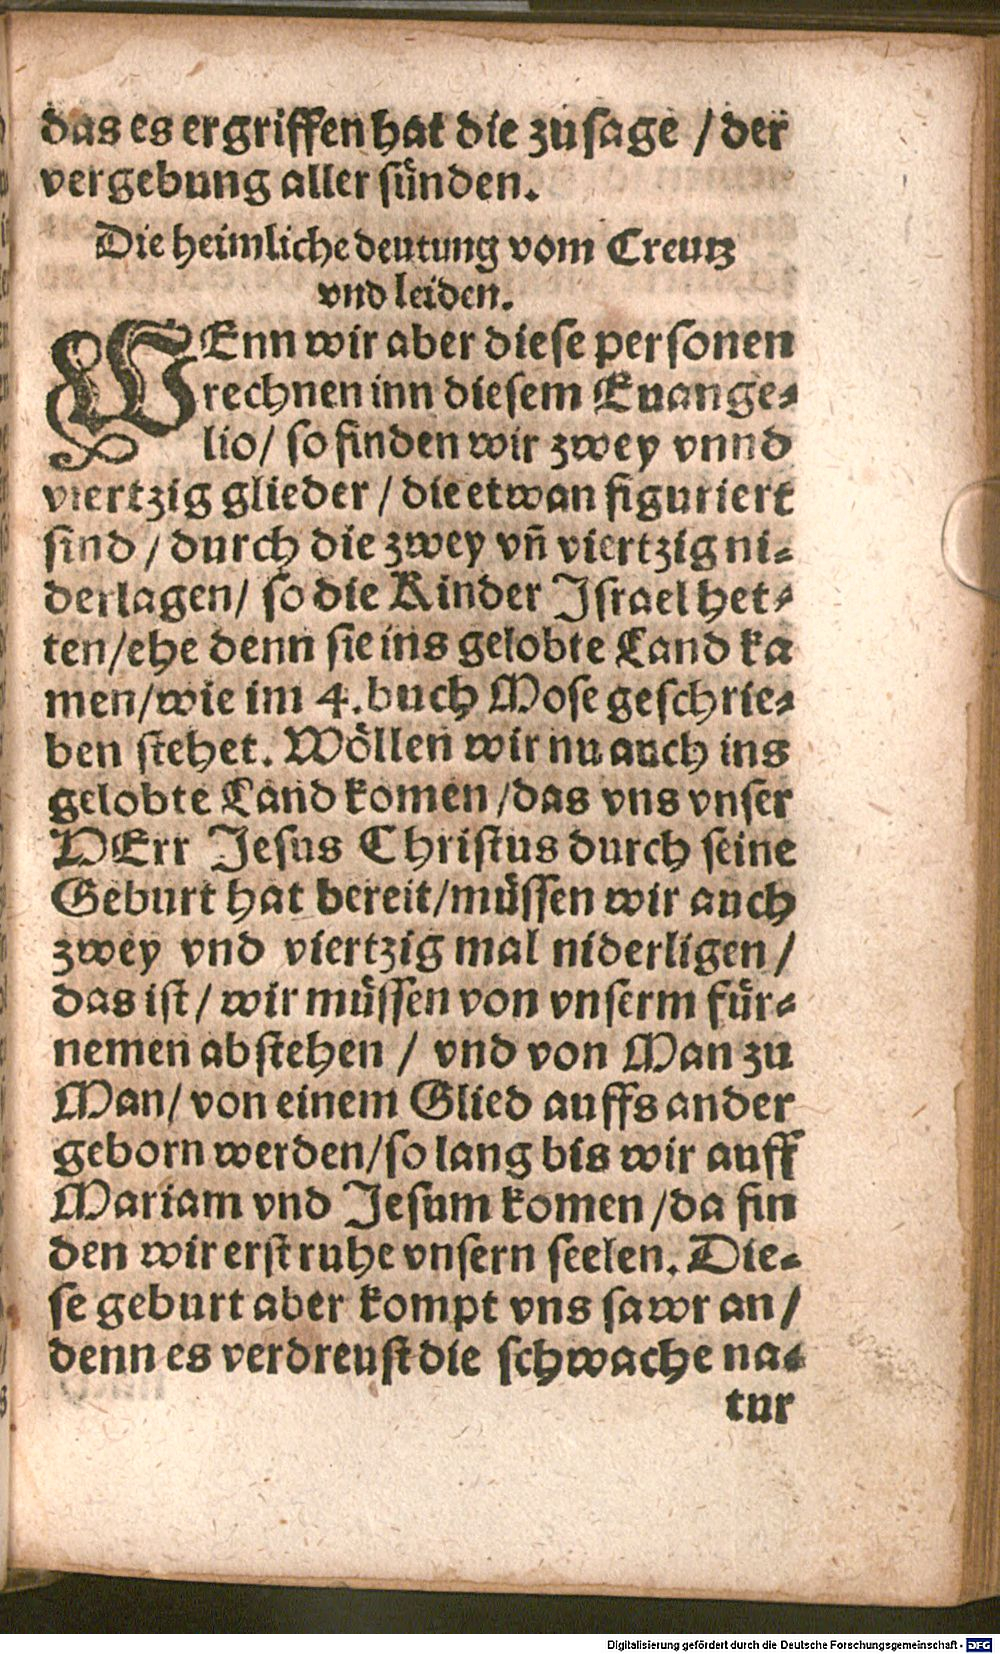 das es ergriffen hat die zusage / der
vergebung aller sünden.
Die heimliche deutung vom Creutz
vnd leiden.
WEnn wir aber diese personen
rechnen inn diesem Euange⸗
lio / so finden wir zwey vnnd
viertzig glieder / die etwan figuriert
sind / durch die zwey vn̄ viertzig ni⸗
derlagen / so die Kinder Israel het⸗
ten / ehe denn sie ins gelobte Land ka
men / wie im 4. buch Mose geschrie⸗
ben stehet. Wöllen wir nu auch ins
gelobte Land komen / das vns vnser
HErr Jesus Christus durch seine
Geburt hat bereit / müssen wir auch
zwey vnd viertzig mal niderligen /
das ist / wir müssen von vnserm für⸗
nemen abstehen / vnd von Man zu
Man / von einem Glied auffs ander
geborn werden / so lang bis wir auff
Mariam vnd Jesum komen / da fin
den wir erst ruhe vnsern seelen. Die⸗
se geburt aber kompt vns sawr an /
denn es verdreust die schwache na⸗
tur
Digitalisierung gefördert durch die Deutsche Forschungsgemeinschaft - DFG